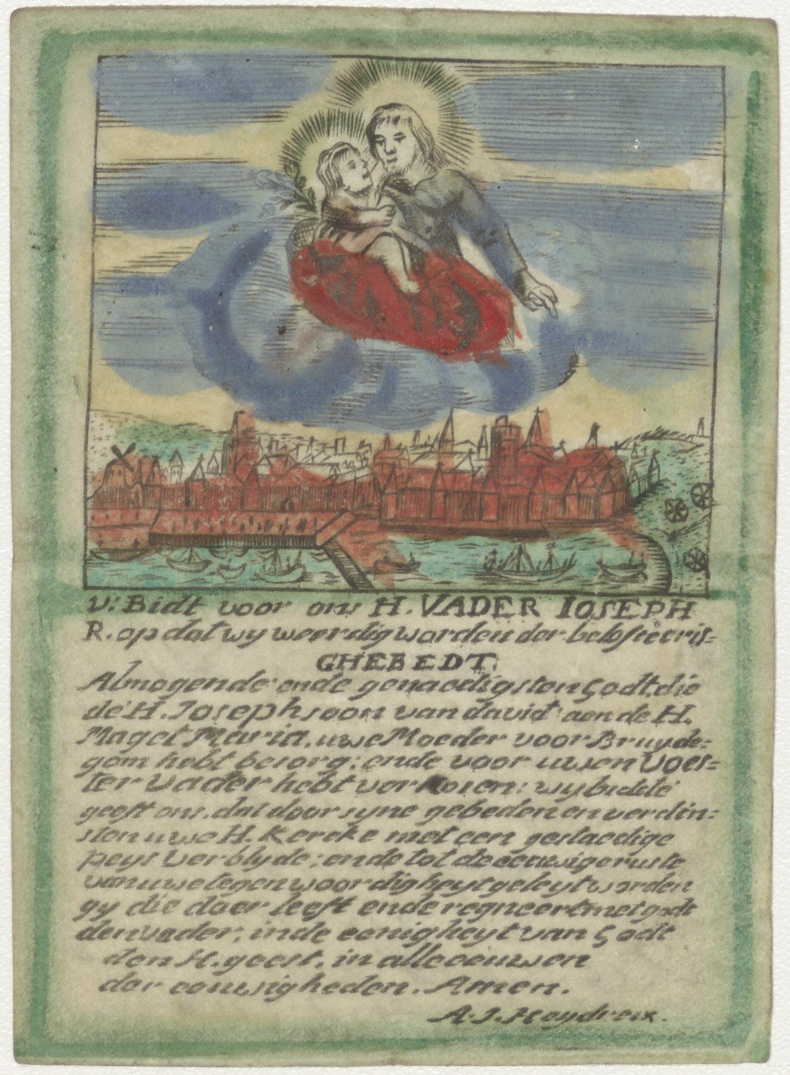 V: Bidt voor ons H. VADER IOSEPH
R. op dat wy weerdig worden der beloftecris=
GHEBEDT.
Almogende ende genaedigsten Godt, die
de H. Joseph soon van david aen de H.
Maget Maria, uwe Moeder voor Bruyde=
gom hebt besorg; ende voor uwen voes=
ter vader hebt verkosen: wy bidde
geeft ons, dat door syne gebeden en verdin=
sten uwe H. Kercke met een gestaedige
peys verblyde; ende tot de eeuwige ruste
van uwe tegenwoordigheyt geleyt worden
gy die daer leeft ende regneert met godt
den vader, in de eenigheyt van Godt
den H. geest, in alle eeuwen
der eeuwigheden. Amen.
A. J. Heydrcix.